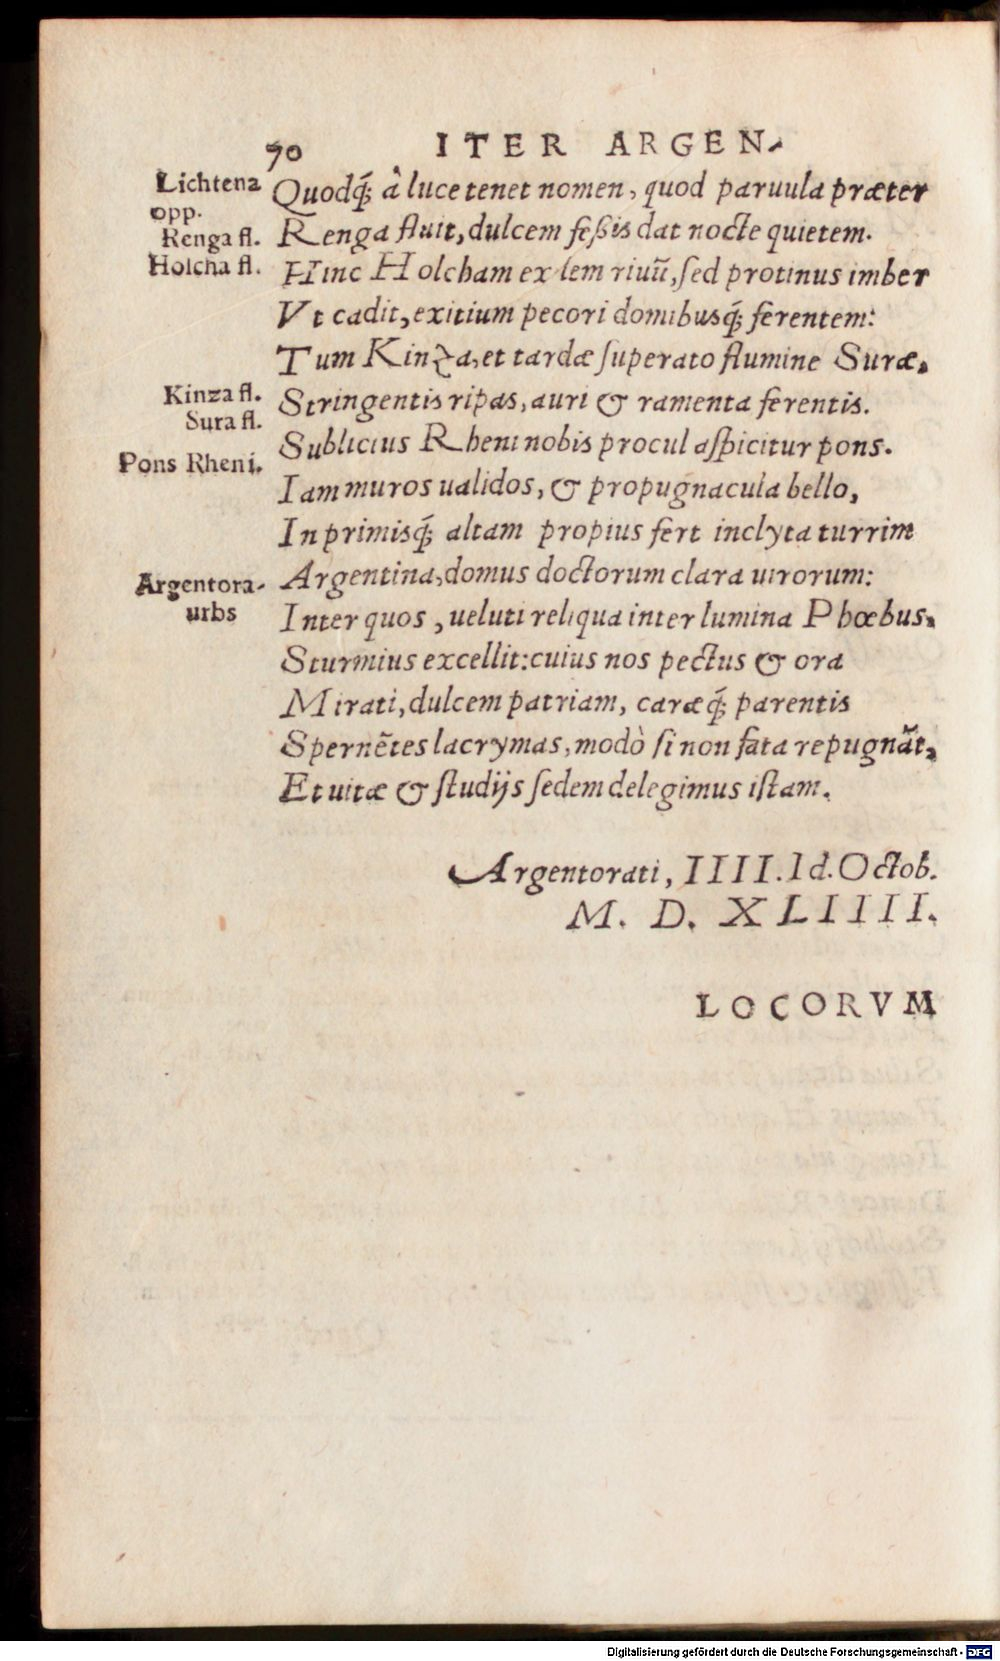 70 ITER ARGEN-
Lichtena
opp.
Renga fl.
Holcha fl.
Kinza fl.
Sura fl.
Pons Rheni.
Argentora-
urbs
Quodq́; à luce tenet nomen, quod paruula præter
Renga fluit, dulcem feſsis dat nocte quietem.
Hinc Holcham exilem riuũ, ſed protinus imber
Vt cadit, exitium pecori domibusq́; ferentem:
Tum Kinza, et tardæ ſuperato flumine Suræ,
Stringentis ripas, auri & ramenta ferentis.
Sublicius Rheni nobis procul aſpicitur pons.
Iam muros ualidos, & propugnacula bello,
In primisq́; altam propius fert inclyta turrim
Argentina, domus doctorum clara uirorum:
Inter quos, ueluti reliqua inter lumina Phœbus,
Sturmius excellit: cuius nos pectus & ora
Mirati, dulcem patriam, caræq́; parentis
Spernẽtes lacrymas, modò ſi non fata repugnãt,
Et uitæ & ſtudijs ſedem delegimus iſtam.
Argentorati, IIII. Id. Octob.
M. D. XLIIII.
LOCORVM
Digitalisierung gefördert durch die Deutsche Forschungsgemeinschaft - DFG